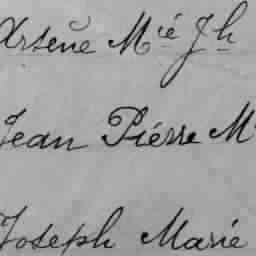 Arsène Mié Jh
Jean Piérre M
Joseph Marie